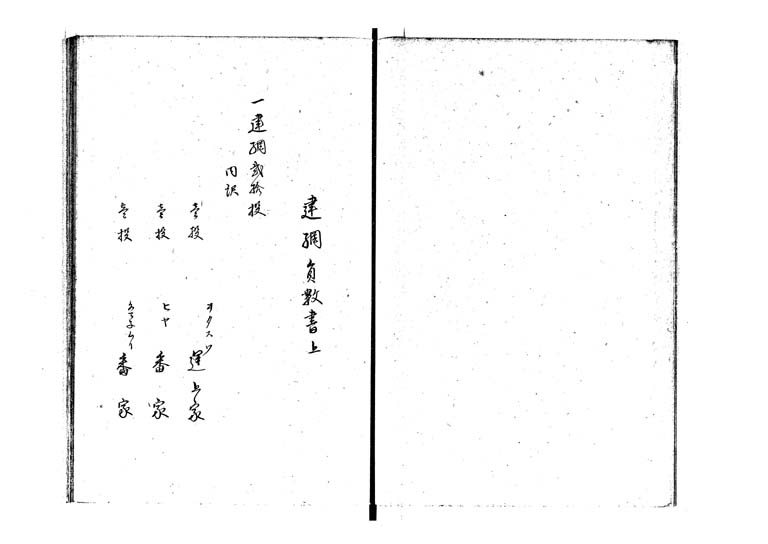 建網員数書上
一建網弐拾投
内訳
壱投 ヲタスツ 運上家
壱投 ヒヤ 番家
壱投 番家